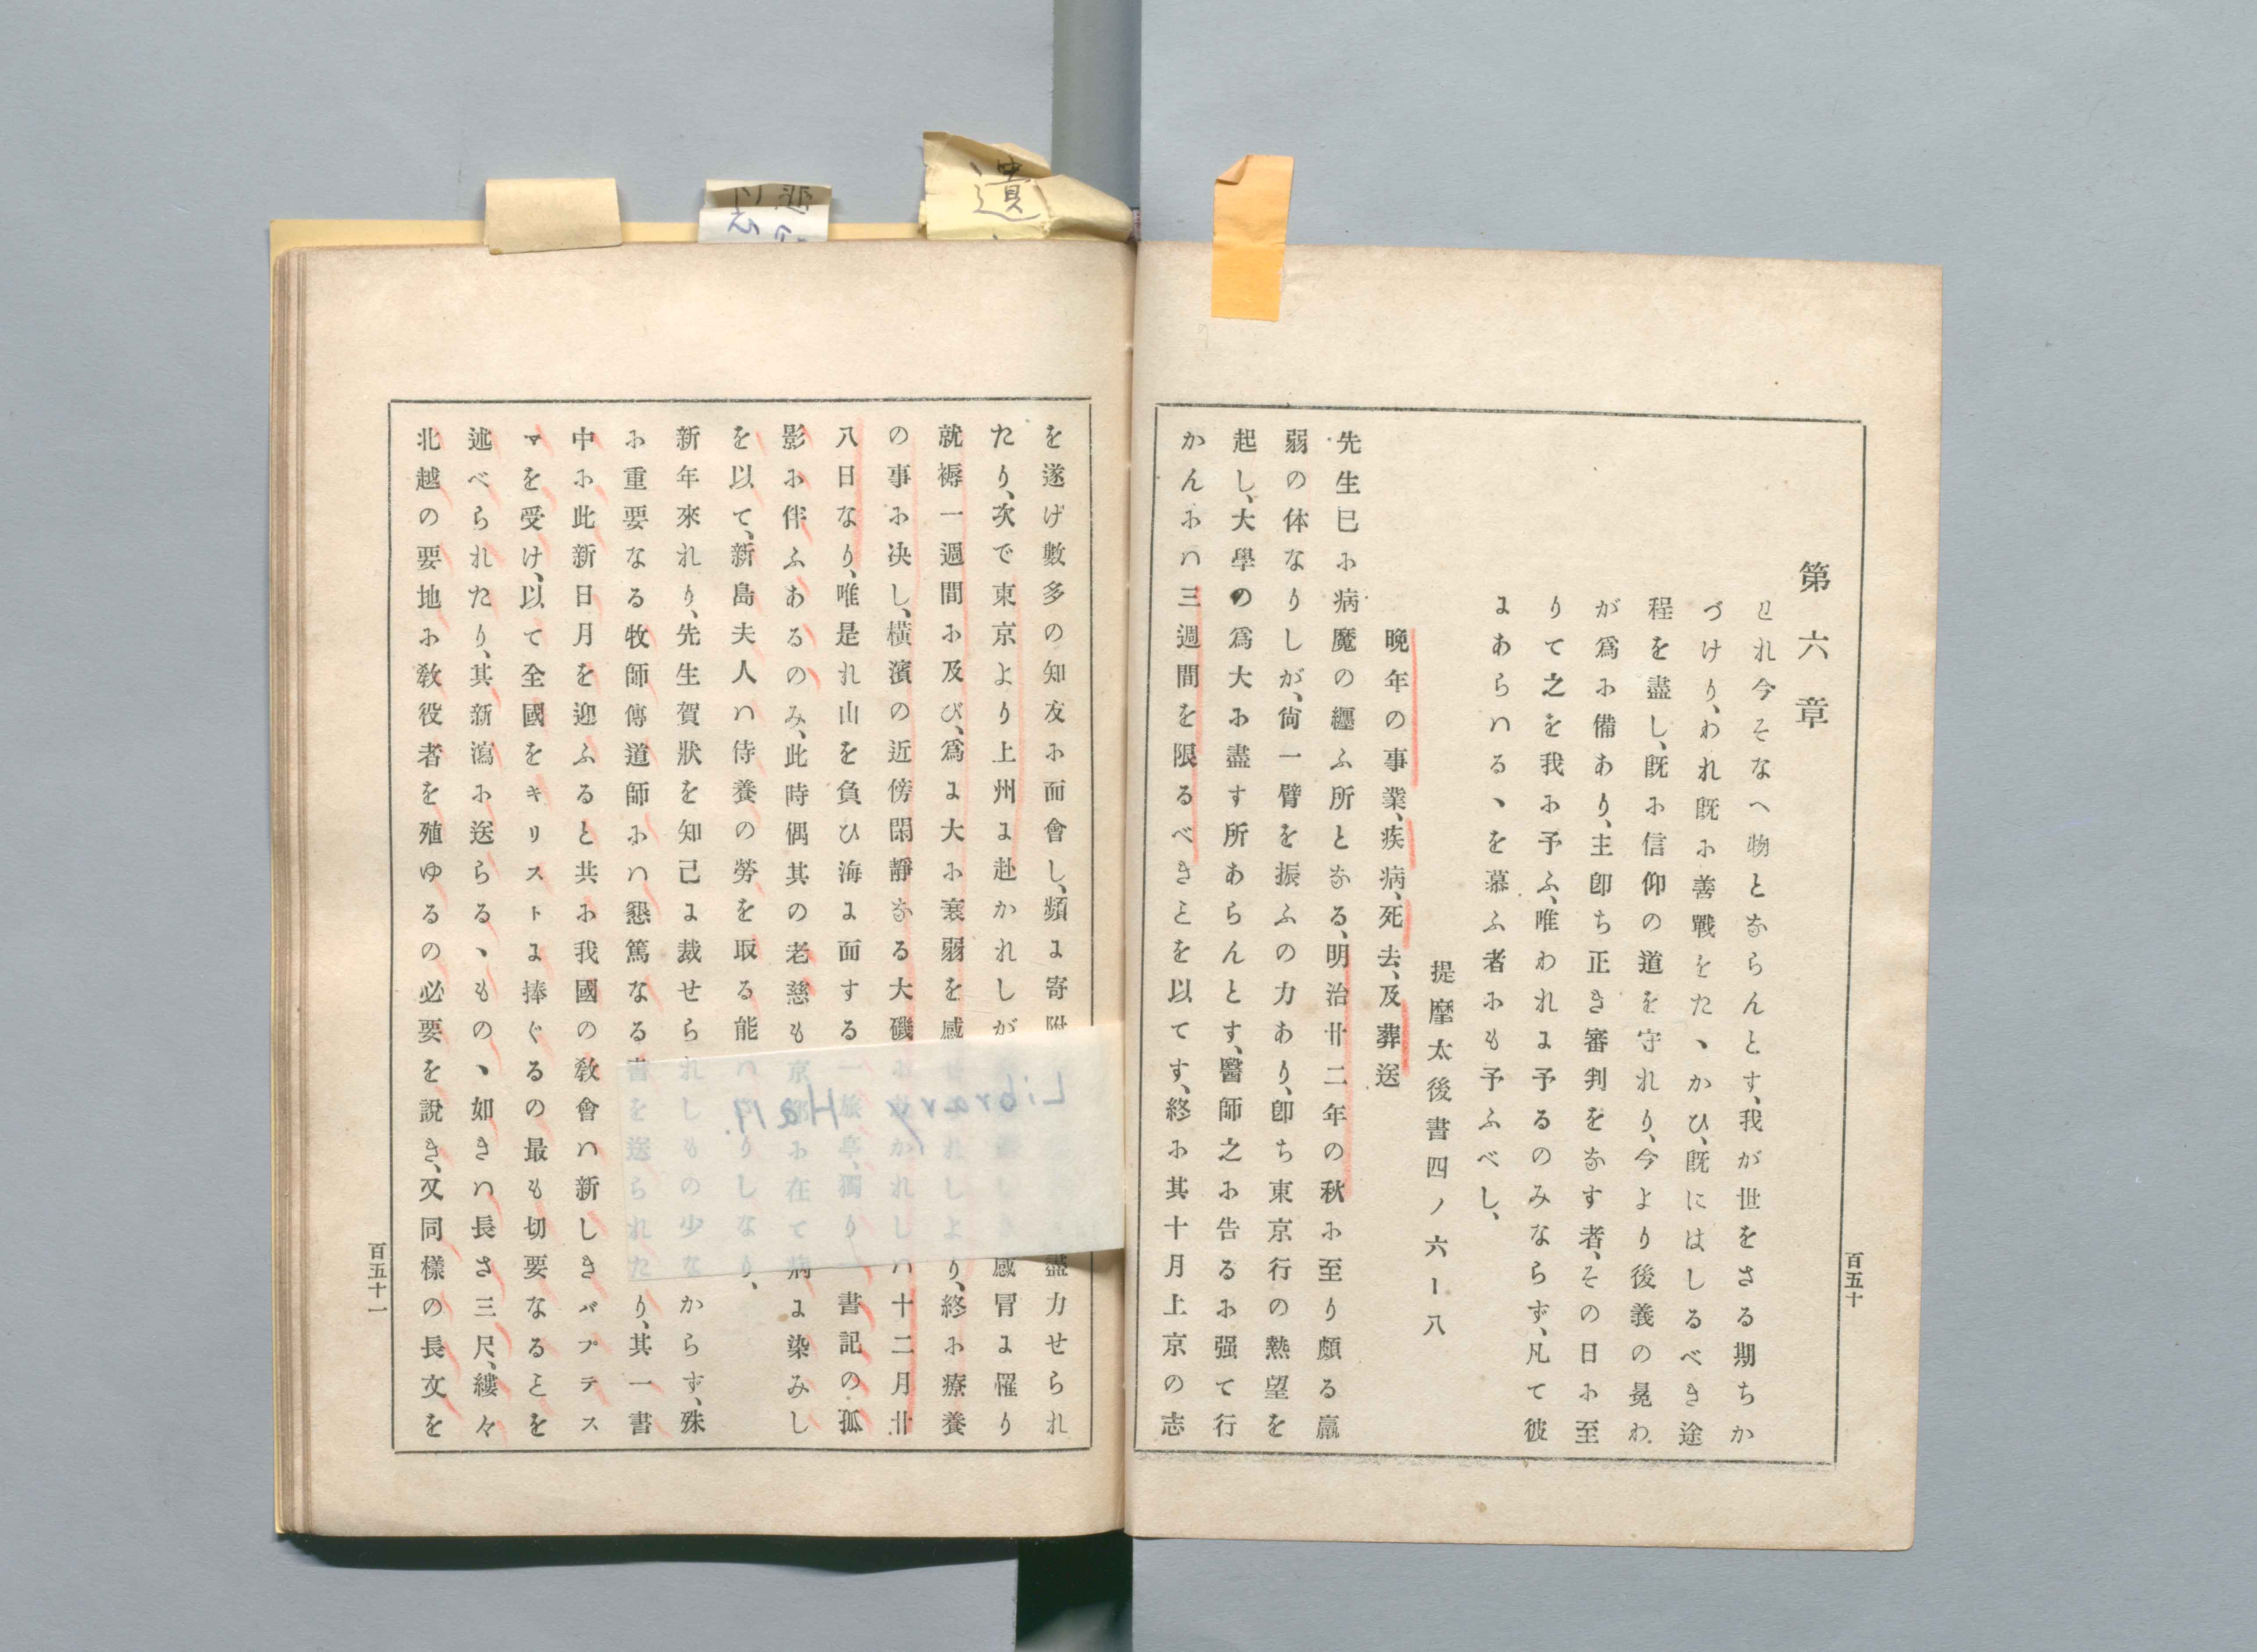 第六章
われ今そなへ物とならんとす、我が世をさる期ちか
づけり、われ既に善戰をたゝかひ、既にはしるべき途
程を盡し、既に信仰の道を守れり、今より後義の冕わ
が爲に備あり、主卽ち正き審判をなす者、その日に至
りて之を我に予ふ、唯われに予るのみならず、凡て彼
にあらはるゝを慕ふ者にも予ふべし、
提摩太後書四ノ六ー八
晩年の事業、疾病、死去、及葬送
先生已に病魔の纒ふ所となる、明治廿二年の秋に至り頗る羸
弱の体なりしが、尙一臂を振ふの力あり、卽ち東京行の熱望を
起し、大學の爲大に盡す所あらんとす、醫師之に告るに强て行
かんには三週間を限るべきことを以てす、終に其十月上京の志
百五十
を遂げ數多の知友に面會し、頻に寄附 盡力せられ
たり、次で東京より上州に赴かれしが 感冒に罹り
就褥一週間に及び、爲に大に衰弱を感 れしより、終に療養
の事に决し、橫濱の近傍閑靜なる大磯に かれしは十二月廿
八日なり、唯是れ山を負ひ海に面する一旅亭、獨り 書記の孤
影に伴ふあるのみ、此時偶其の老慈も京都に在て病に染みし
を以て、新島夫人は侍養の勞を取る能は りしなり、
新年來れり、先生賀狀を知己に裁せられしもの少なからず、殊
に重要なる牧師傳道師には懇篤なる書を送られたり、其一書
中に此新日月を迎ふると共に我國の敎會は新しきバプテス
マを受け、以て全國をキリストに捧ぐるの最も切要なることを
述べられたり、其新瀉に送らるゝものゝ如きは長さ三尺、縷々
北越の要地に敎役者を殖ゆるの必要を說き、又同樣の長文を
百五十一
遺
Library Hall.